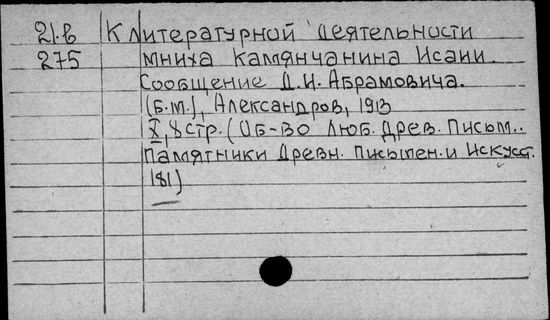 21.в К литературной деятельности
275 мниха Камянчанина Исаии.
Сообщение Д.И. Абрамовича.
(Б.м.), Александров, 1913
X, 8 стр. (Об-во люб. древ. письм..
Памятники древн. письмен. и искусст.
181)